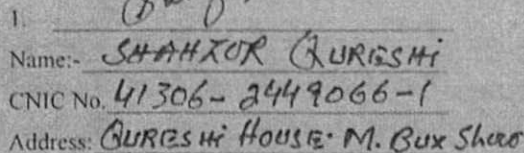 1.
Name:- SHAHZOR QURESHI
CNIC No. 41306-2449066-1
Address: QURESHI HOUSE. M. Bux Shoro